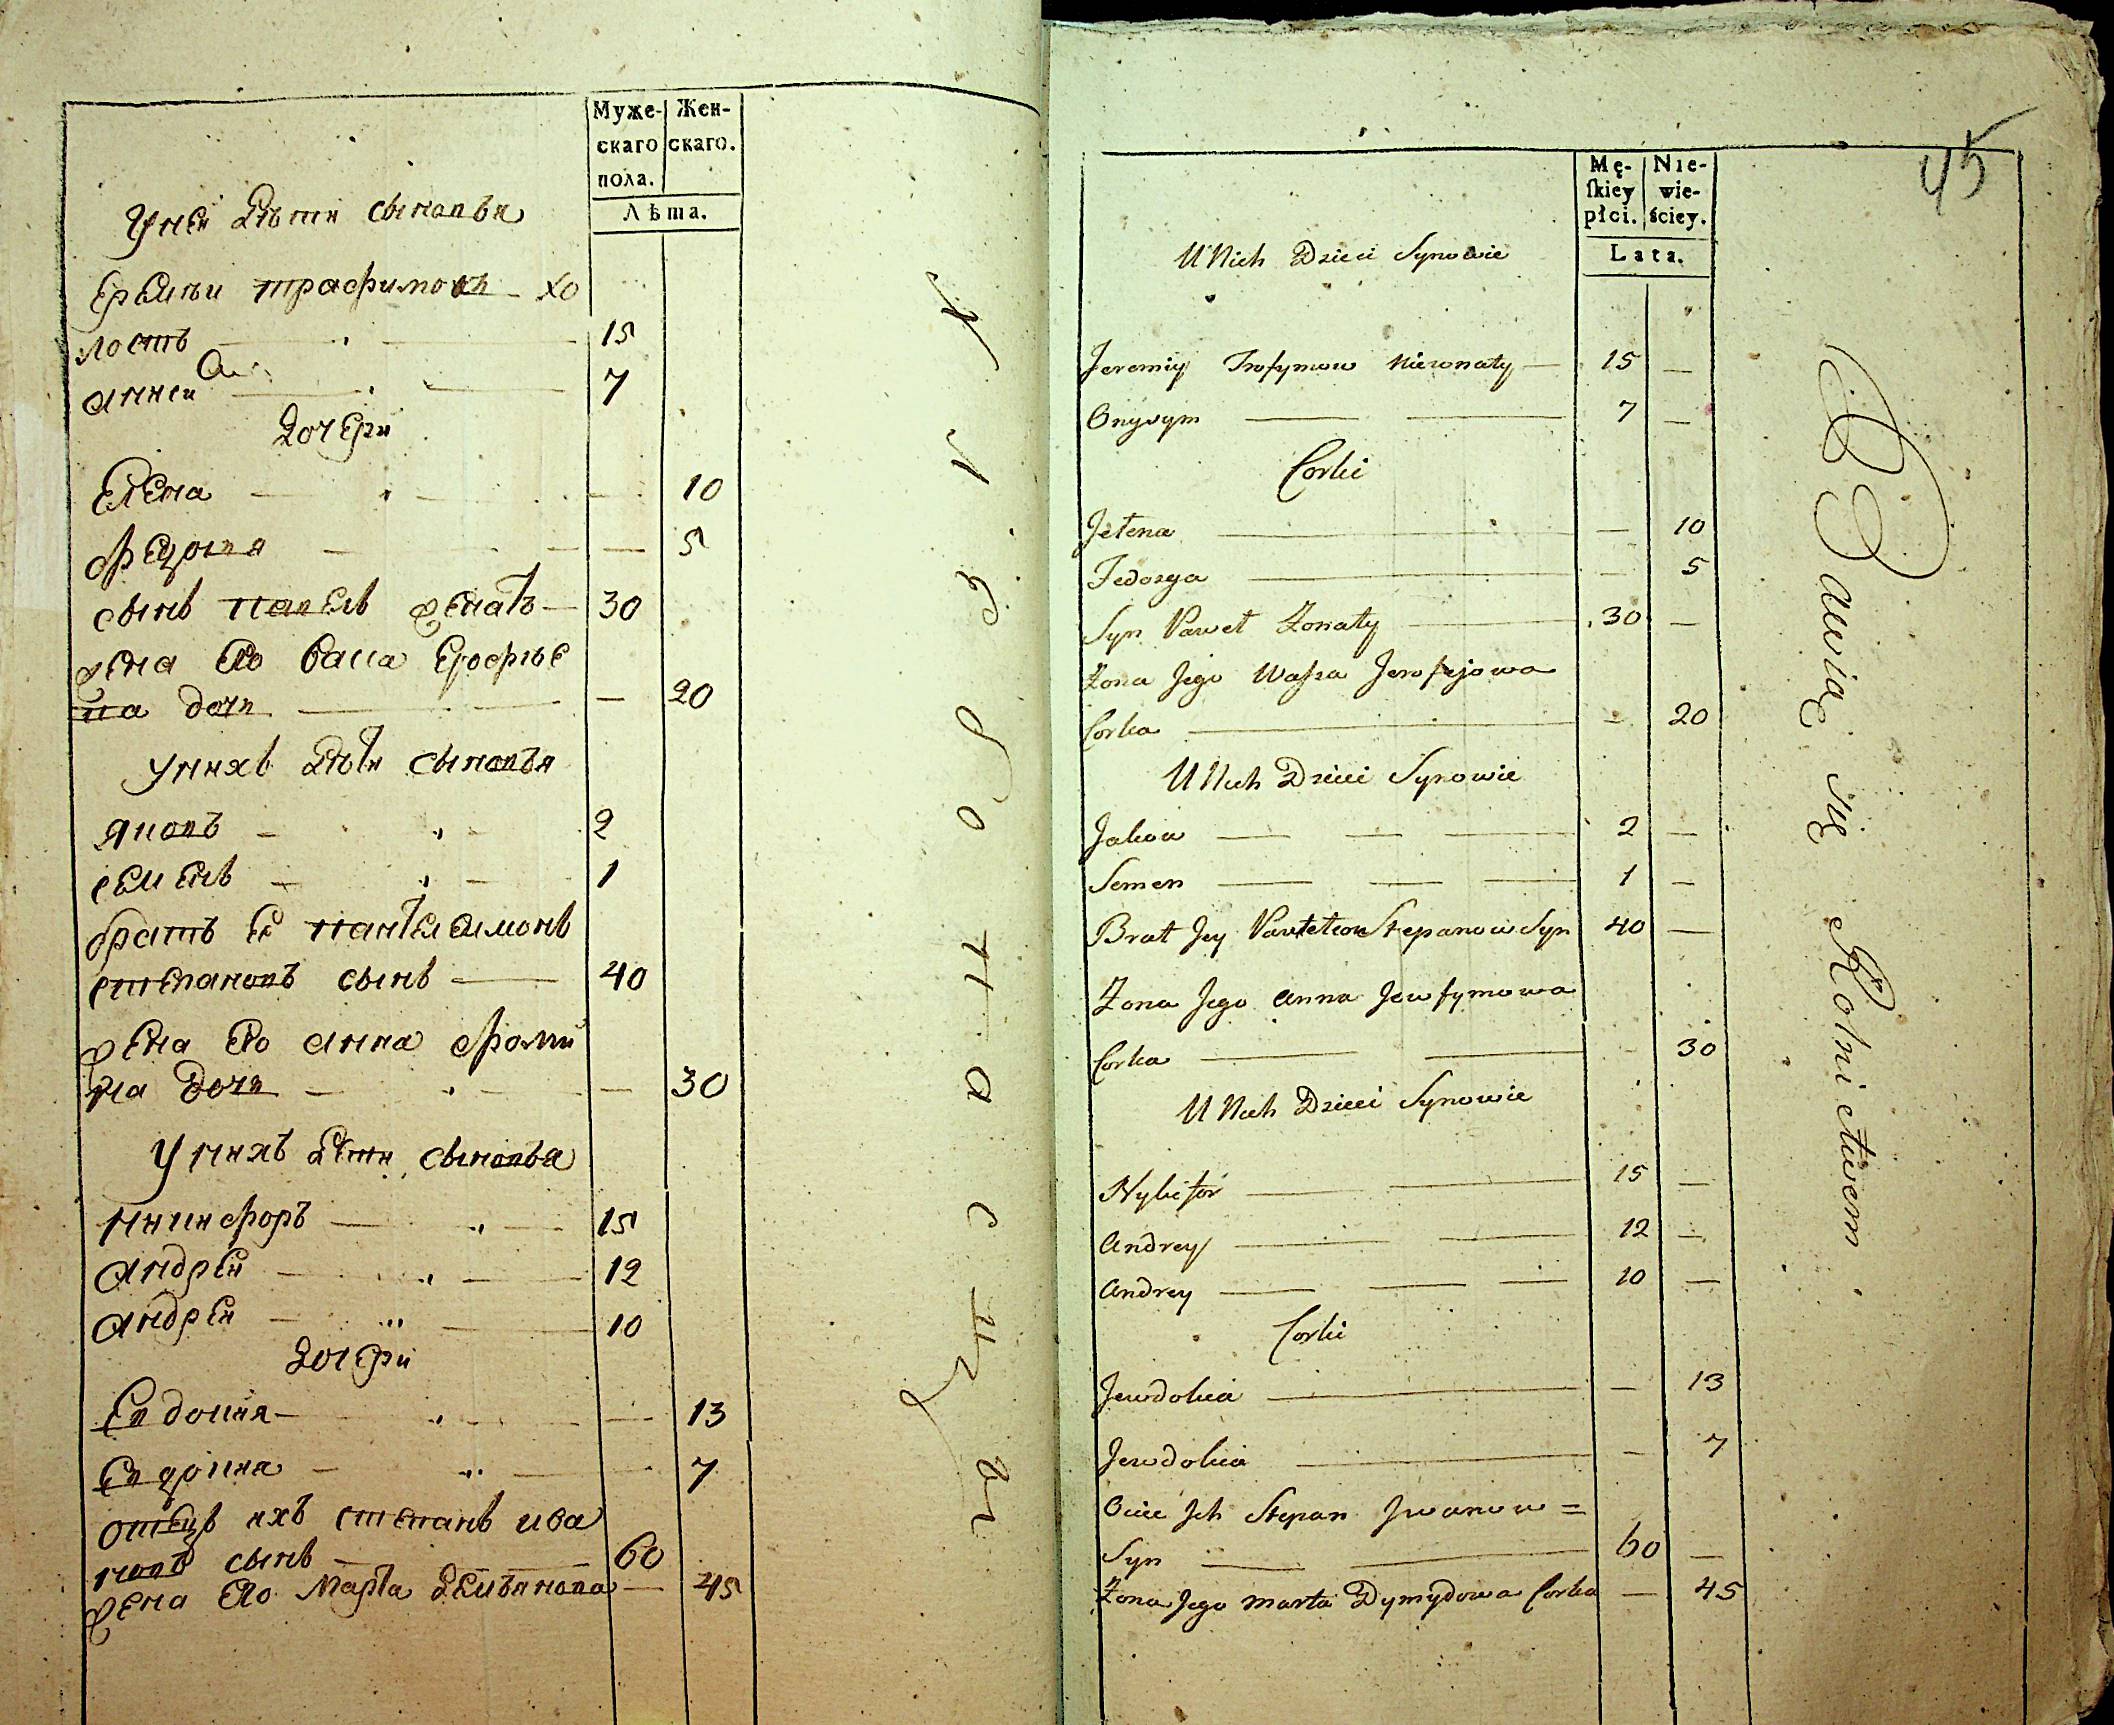 Муже-
скаго
пола.
Жен-
скаго.
Лѣта.
Уней дѣти сыновья
Еремѣи трафимовъ хо
лостъ 15
7
дочери
Елена — 10
Федосья — 5
сынъ павелъ женатъ — 30
жена его васса Ерофѣе
ва дочь — 20
унихъ дѣти сыновья
яковъ — 2
семенъ — 1
братъ ее пантелеимонъ
степановъ сынъ — 40
жена его анна
на дочь — 30
унихъ дети сыновья
никифоръ — 15
андрей — 12
андрей — 10
дочери
Евдокия — 13
Евдокия — 7
отецъ ихъ степанъ ива
новъ сынъ — 60
жена его марта демьянова — 45
45
Mę-
skiey
płci.
Nie-
wie-
ściey.
Lata.
U Nich Dzieci Synowie
Jeremiy Trofymow Niezonaty — 15 —
Onysym — 7 —
Corki
Jełena — 10
Fedosya — 5
Syn Paweł Zonaty — 30 —
Zona Jego Wassa Jerofejowa
Corka — 20
U Nich Dzieci Synowie
Jakow — 2 —
Semen — 1 —
Brat Jey Stepanow Syn 40 —
Zona Jego Anna Jewfymowa
Corka — 30
U Nich Dzieci Synowie
Nykifor — 15 —
Andrey — 12 —
Andrey — 10 —
Corki
Jewdokia — 13
Jewdokia — 7
Ociec Ich Stepan Jwanow =
Syn — 60 —
Zona Jego Marta Dymydowa Corka — 45
Bawią się Rolnictwem